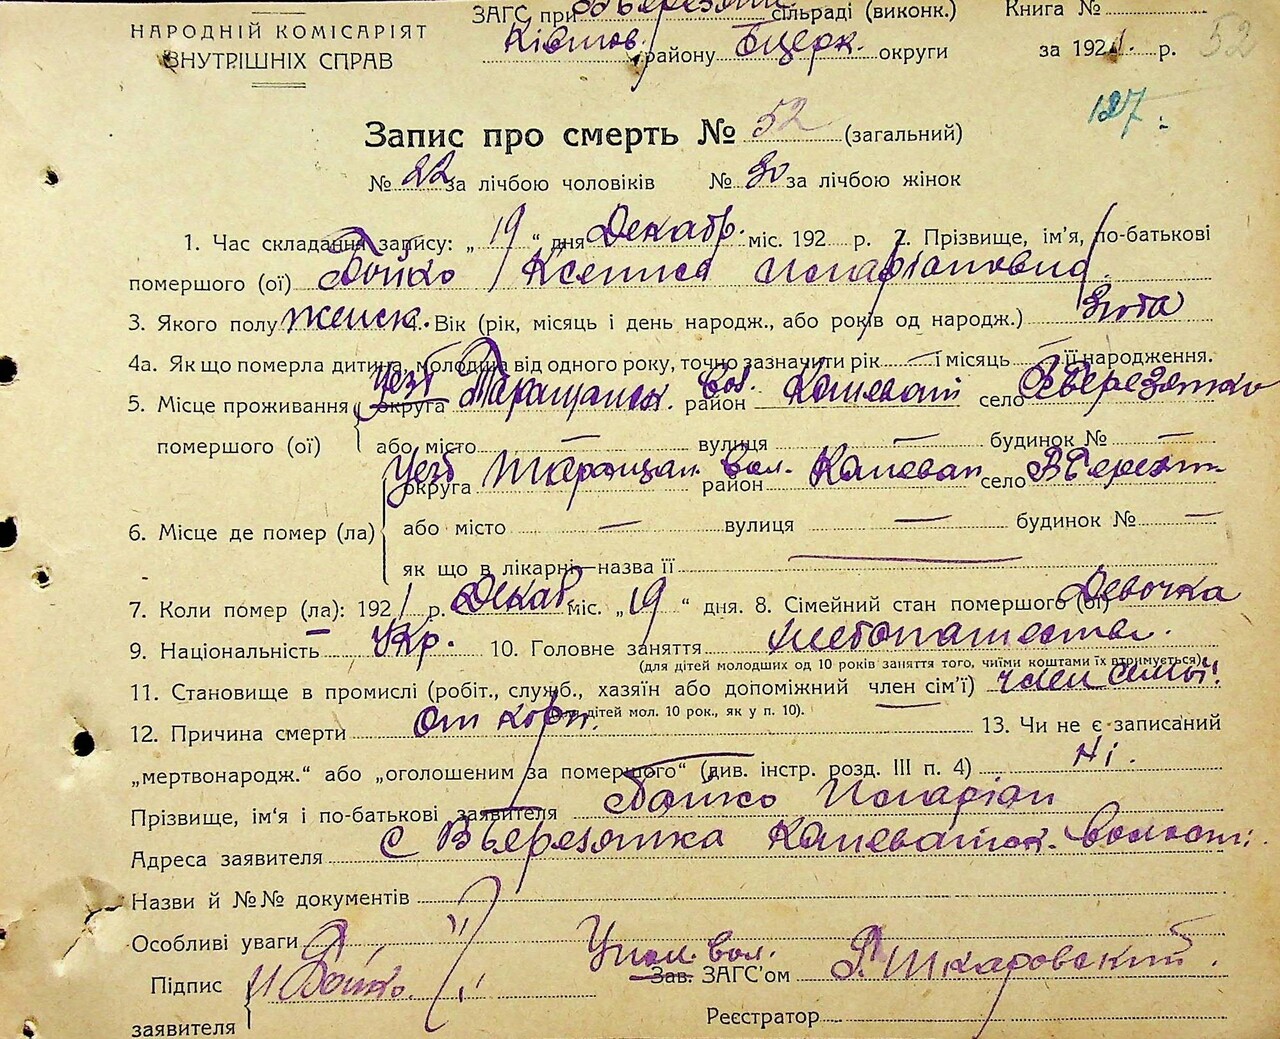 НАРОДНІЙ КОМІСАРІЯТ
ВНУТРІШНІХ СПРАВ
ЗАГС при сільраді (виконк.)
району Бцерк. округи
Книга №
за 1921 р.
52
127
Запис про смерть № 52 (загальний)
№ 22 за лічбою чоловіків № 30 за лічбою жінок
1. Час складання запису: „ 19 “ дня Декабр. міс. 192 р. 2. Прізвище, ім'я, по-батькові
помершого (ої) Бойко Ксения
3. Якого полу женск. 4. Вік (рік, місяць і день народж., або років од народж.) 3 года
4а. Як що померла дитина, молодша від одного року, точно зазначити рік — і місяць — її народження.
5. Місце проживання округа уезд Таращанск. район вол. село
помершого (ої) або місто — вулиця — будинок № —
6. Місце де помер (ла) округа уезд Таращан. район вол. село
або місто — вулиця — будинок № —
як що в лікарні—назва її —
7. Коли помер (ла): 1921 р. Декаб. міс. „ 19 “ дня. 8. Сімейний стан помершого (ої) Девочка
9. Національність Укр. 10. Головне заняття хлебопашество.
(для дітей молодших од 10 років заняття того, чиїми коштами їх втримується)
11. Становище в промислі (робіт., служб., хазяїн або допоміжний член сім'ї) член семьї.
(для дітей мол. 10 рок., як у п. 10).
12. Причина смерти от кори. 13. Чи не є записаний
„мертвонародж.“ або „оголошеним за помершого“ (див. інстр. розд. III п. 4) Ні.
Прізвище, ім'я і по-батькові заявителя Бойко
Адреса заявителя с волості.
Назви й №№ документів
Особливі уваги
Підпис заявителя И Бойко.
Зав. ЗАГС'ом вол. Шкаровский.
Реєстратор